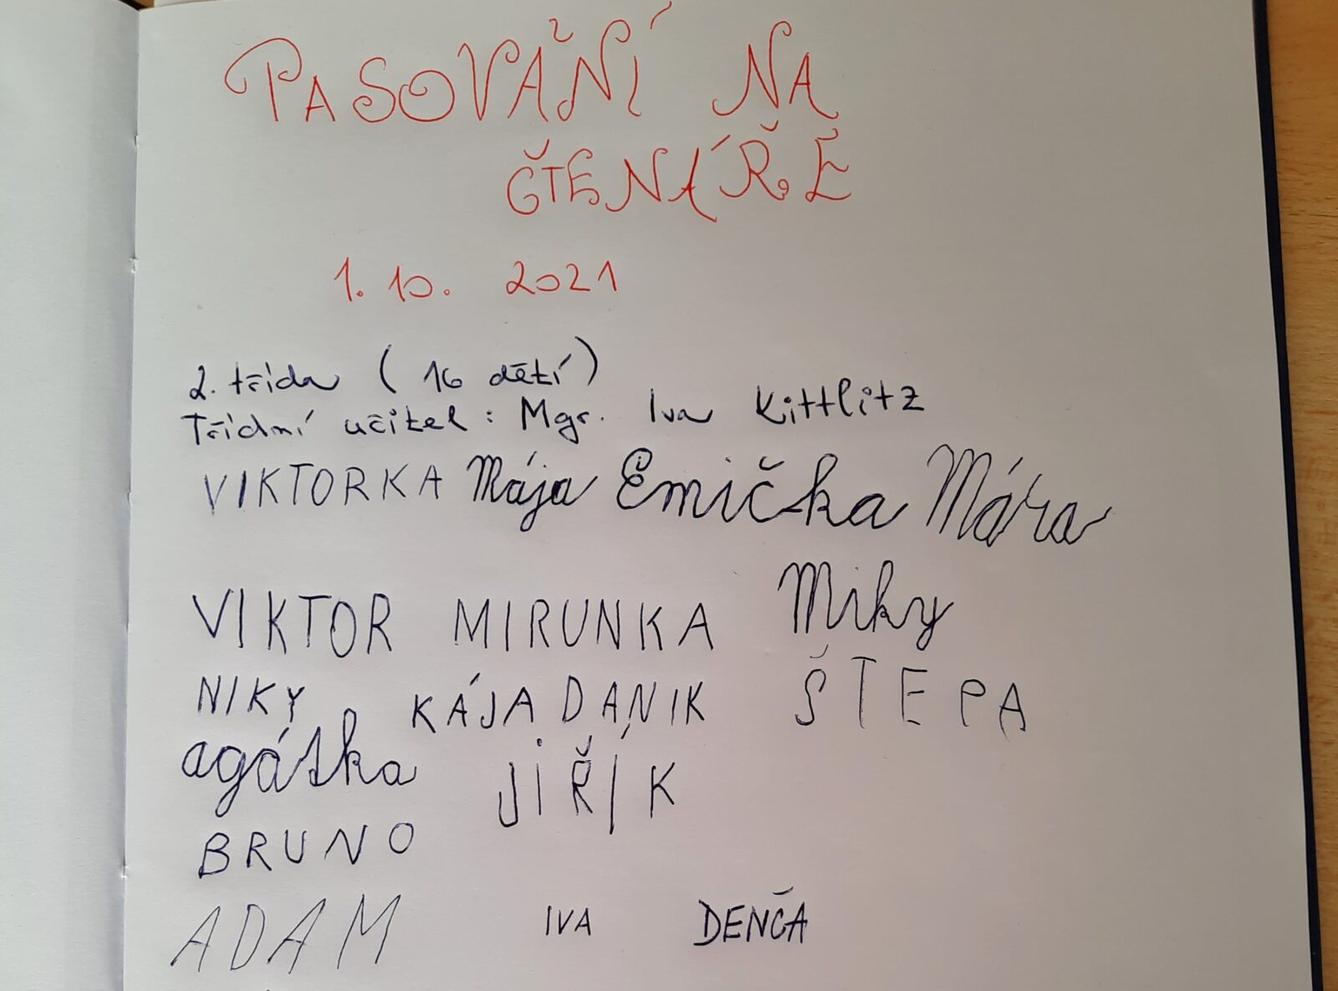 PASOVÁNÍ NA
ČTENÁŘE
1. 10. 2021
2. třída (16 dětí)
Třídní učitel: Mgr. Iva Kittlitz
VIKTORKA Mája Emička Mára
VIKTOR MIRUNKA Miky
NIKY KÁJA DANIK ŠTEPA
agátka JIŘÍK
BRUNO
ADAM IVA DENČA